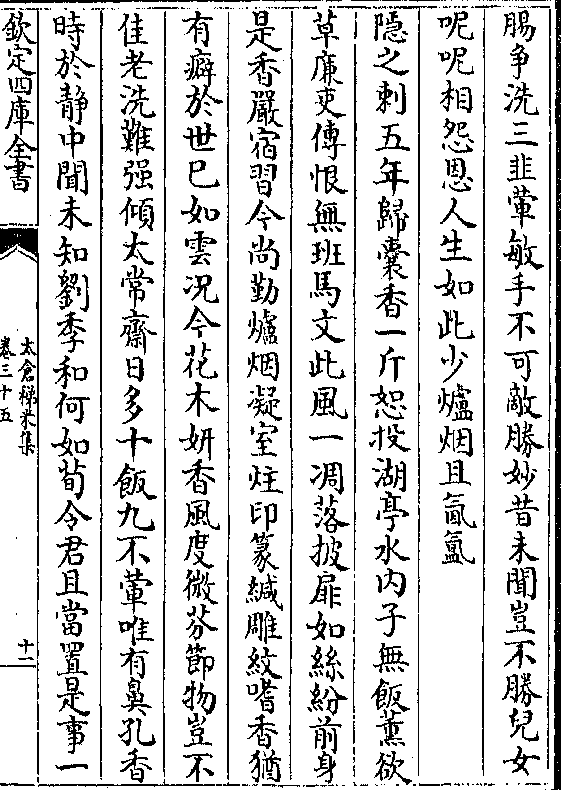 腸争洗三韭葷敏手不可敵勝妙昔未聞豈不勝兒女
呢呢相怨恩人生如此少爐烟且氤氳
隱之刺五年歸囊香一斤恕投湖亭水内子無飯薫欲
草廉吏傳恨無班馬文此風一凋落披扉如絲紛前身
是香嚴宿習今尚勤爐烟凝室炷印篆緘雕紋嗜香猶
有癖於世已如雲况今花木妍香風度微芬節物豈不
佳老洗難强傾太常齋日多十飯九不葷唯有鼻孔香
時於静中聞未知劉季和何如荀令君且當置是事一
欽定四庫全書
太倉稊米集
卷三十五
十一